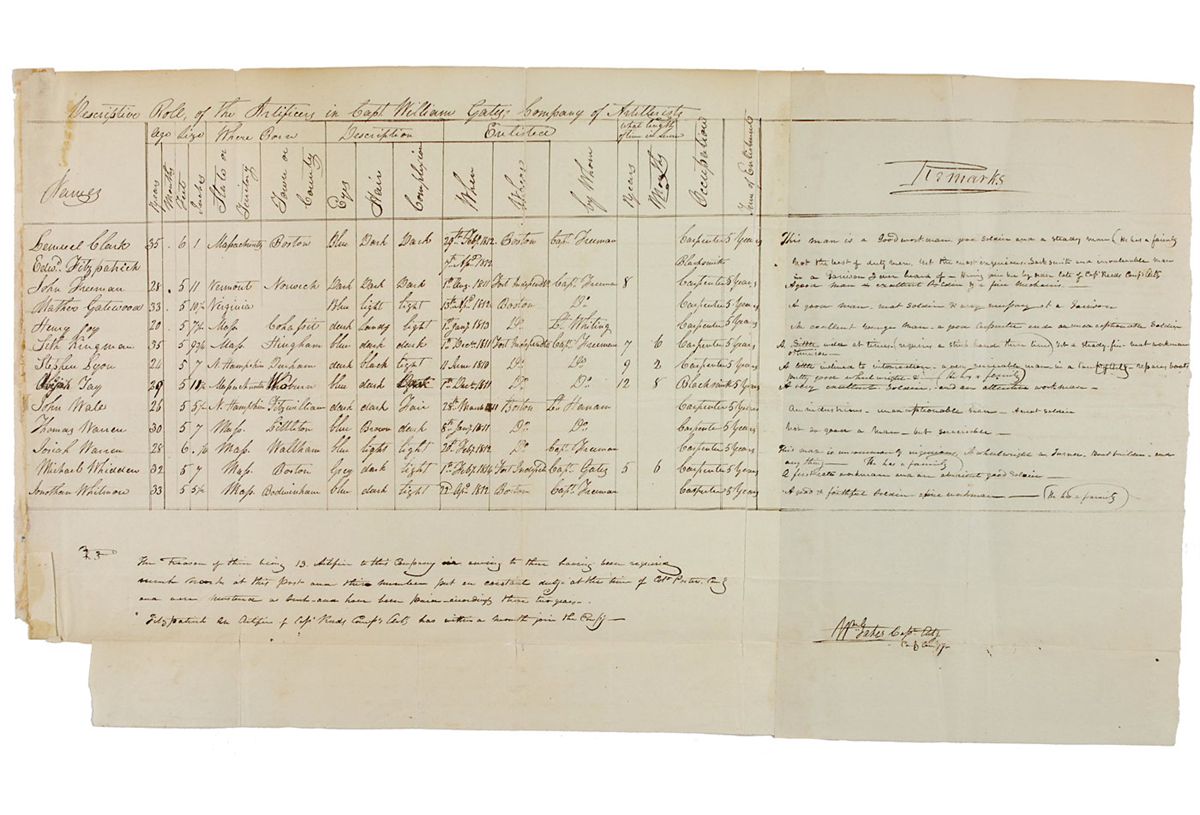 Descriptive Roll, of the Artificers in Capt William Gates, Company of Artillerists
Age Size Where Born Description Enlisted what length of time in service
Names Years Months Feet Inches State or Territory Town or County Eyes Hair Complexion When Where by Whom Years Months Occupation Term of Enlistments Remarks
Lemuel Clark 35 . 6 1 Massachusetts Boston Blue Dark Dark 29th Feby 1812 Boston Capt Freeman Carpenter 5 Years This man is a Good workman good Soldier and a steady man (He has a family
Edwd. Fitzpatrick 7th 1812 Blacksmith Not the best of duty men, but the most ingenious and invaluable man
in a Garrison I ever heard of Having join me by order late of Capt Reeds Compy Arty
John Freeman 28 . 5 11 Vermont Norwich Dark Dark Dark 1st Aug. 1811 Fort Independce Capt Freeman 8 Carpenter 5 Years A good man & excellent Soldier & a fine Mechanic
Mathew Gatewood 33 . 5 Virginia Blue light light 13th Apl 1812 Boston Do. Carpenter 5 Years A good man, and Soldier & very necessary at a Garrison
Henry Joy 20 . 5 7½ Mass Cohasset dark Sandy light 1st Jany 1813 Do. Lt. Whiting Carpenter 5 Years An excellent younger man, a good Carpenter and an unexceptionable Soldier
Seth Kingman 35 . 5 9¾ Mass Hingham blue dark dark 1st Decr 1811 Fort Independce Capt Freeman 7 6 Carpenter 5 Years A little wild at times, requires a stick hand then (and) is a steady fine neat workman
Stephen Lyon 24 5 7 N. Hampshire Durham dark black light 11 June 1810 Do. Do. 9 2 Carpenter 5 Years A little inclined to intoxication, a very valuable man in a Garrison repairs boats
pretty good wheelwright & (He has a family)
Tay 29 5 Massachusetts Woburn blue dark 1st Decr 1811 Do. Do. 12 8 Blacksmith 5 Years A very excellent Soldier, and an attentive workman
John Wales 26 5 5½ N. Hampshire Fitzwilliam dark dark Fair 28th March 1811 Boston Lt Hanam Carpenter 5 Years An industrious man, actionable man A neat soldier
Thomas Warren 30 5 7 Mass. Littleton blue Brown dark 8th Jany 1811 Do. Do. Carpenter 5 Years Not so good a man but serviceable
Josiah Warren 28 6 . ½ Mass. Waltham blue light light 28th Feby 1812 Do. Capt Freeman Carpenter 5 Years This man is uncommonly ingenious, A wheelwright, a Turner, Boat builder, and
any thing (He has a family)
Michael Whidden 32 5 7 Mass Boston Grey dark light 1st Feby 1814 Fort Indepdce Capt Gates 5 6 Carpenter 5 Years A first rate workman and an obedient good Soldier
Jonathan Whitmore 33 5 5½ Mass. Bodwinham blue dark light 22d Apl. 1812 Boston Capt Freeman Carpenter 5 Years A good & faithful Soldier, a fine workman (He has a family)
The Reason of there being 13 Artificers to this Company is owing to there having been required
much work at this post and this number put on constant duty at the time of Col. Porter, Comg
and were mustered as such and have been paid accordingly these two years.
Fitzpatrick an Artificer of Capt Reeds Compy Arty has within a month join the Compy
Wm. Gates Capt Arty
Comg Compy